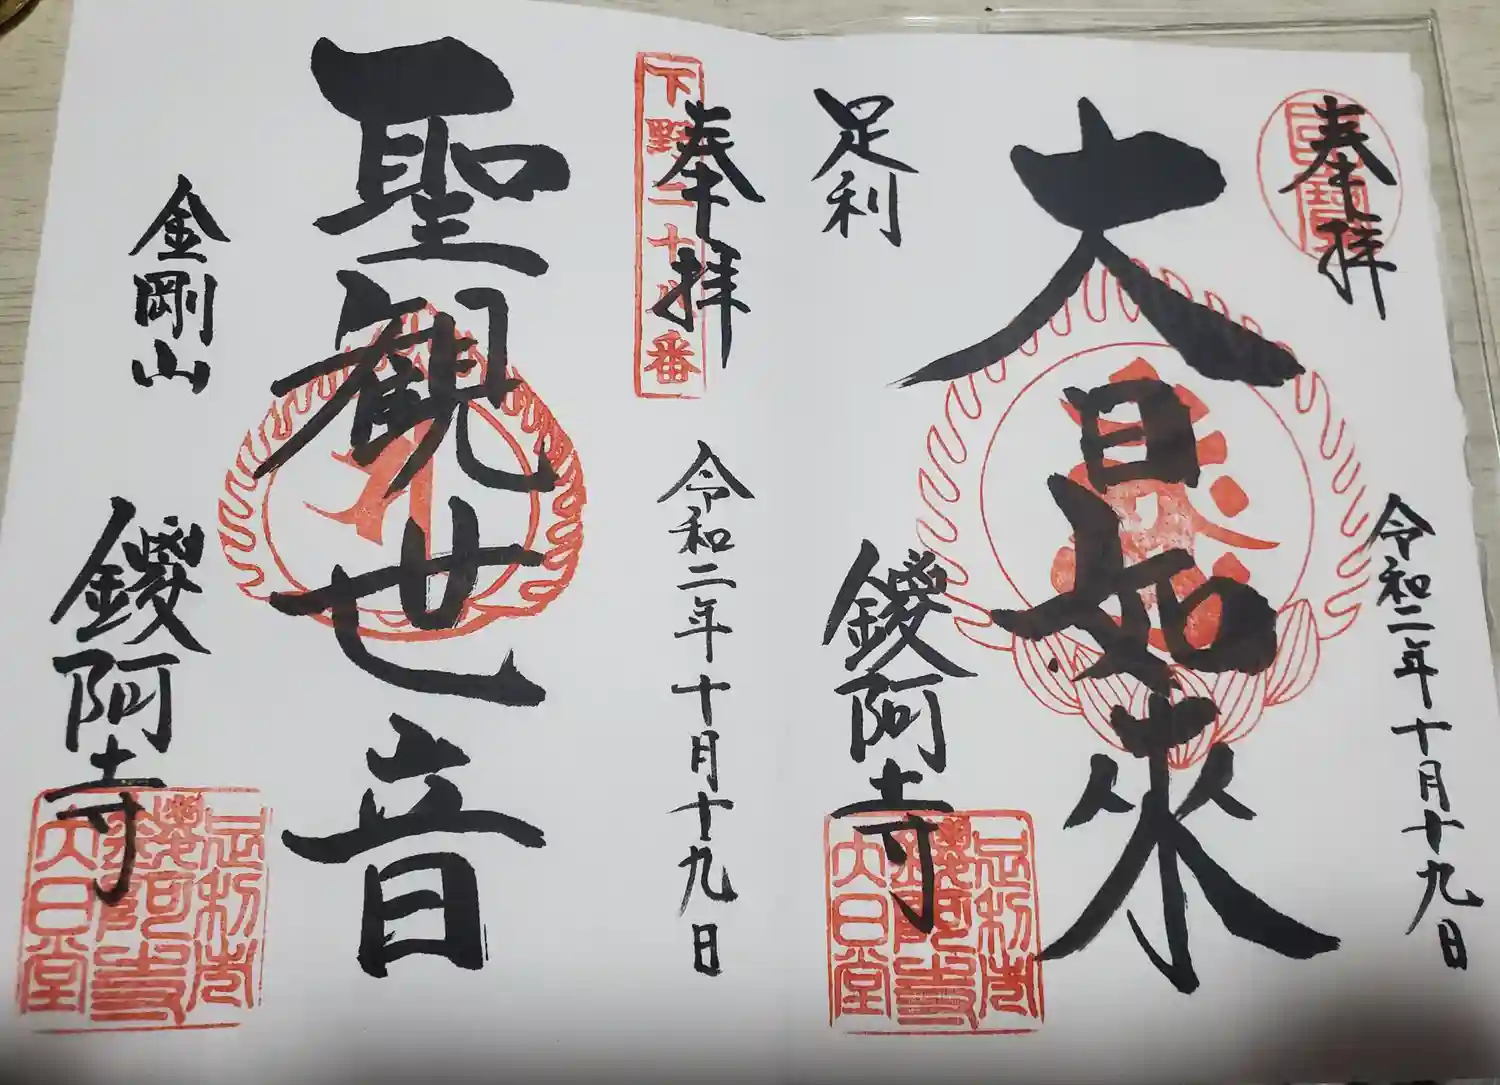 奉拝
國寶
令和二年十月十九日
大日如来
足利
鑁阿寺
足利市
鑁阿寺
大日堂
奉拝
令和二年十月十九日
聖観世音
金剛山
鑁阿寺
足利市
鑁阿寺
大日堂